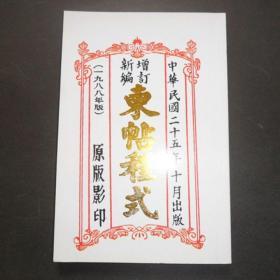 中華民國二十五年十月出版
增訂
新編
柬帖程式
(一九八八年版)
原版影印